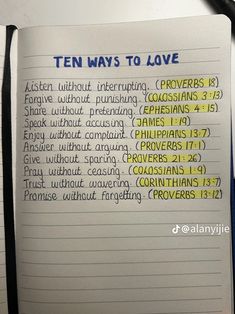 TEN WAYS TO LOVE
Listen without interrupting. (PROVERBS 18)
Forgive without punishing. (COLOSSIANS 3:13)
Share without pretending. (EPHESIANS 4:15)
Speak without accusing. (JAMES 1:19)
Enjoy without complaint. (PHILIPPIANS 13:7)
Answer without arguing. (PROVERBS 17:1)
Give without sparing. (PROVERBS 21:26)
Pray without ceasing. (COLOSSIANS 1:9)
Trust without wavering. (CORINTHIANS 13:7)
Promise without forgetting. (PROVERBS 13:12)
@alanyijie